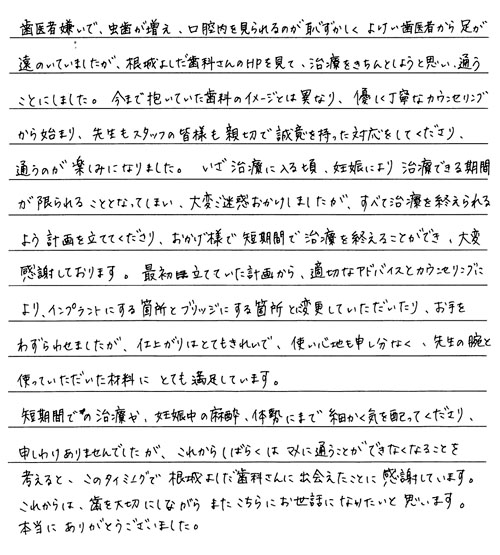 歯医者嫌いで、虫歯が増え、口腔内を見られるのが恥ずかしく よけい歯医者から足が
遠のいていましたが、根城よしだ歯科さんのHPを見て、治療をきちんとしようと思い、通う
ことにしました。今まで抱いていた歯科のイメージとは異なり、優しく丁寧なカウンセリング
から始まり、先生もスタッフの皆様も親切で誠意を持った対応をしてくださり、
通うのが楽しみになりました。 いざ治療に入る頃、妊娠により治療できる期間
が限られることとなってしまい、大変ご迷惑おかけしましたが、すべて治療を終えられる
よう計画を立ててくださり、おかげ様で短期間で治療を終えることができ、大変
感謝しております。最初立てていた計画から、適切なアドバイスとカウンセリングに
より、インプラントにする箇所とブリッジにする箇所と変更していただいたり、お手を
わずらわせましたが、仕上がりはとてもきれいで、使い心地も申し分なく、先生の腕と
使っていただいた材料に とても満足しています。
短期間での治療や、妊娠中の麻酔、体勢にまで細かく気を配ってくださり、
申しわけありませんでしたが、これからしばらくはマメに通うことができなくなることを
考えると、このタイミングで根城よしだ歯科さんに出会えたことに感謝しています。
これからは、歯を大切にしながら またこちらにお世話になりたいと思います。
本当にありがとうございました。